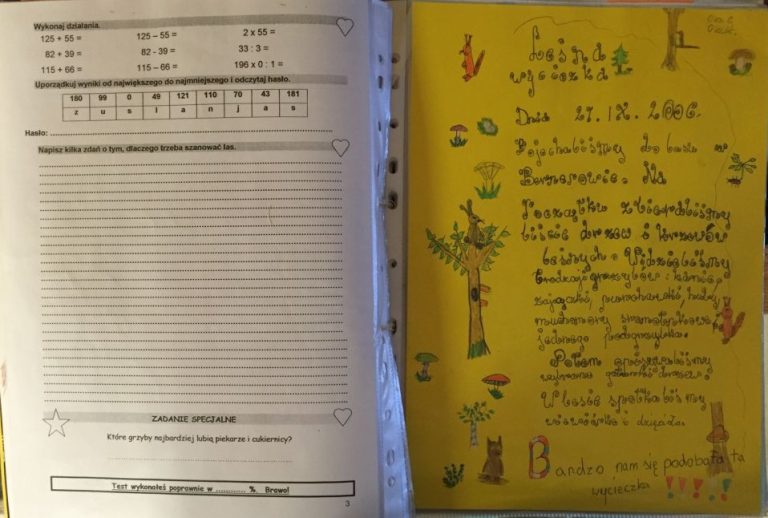 Wykonaj działania.
125 + 55 = 125 – 55 = 2 x 55 =
82 + 39 = 82 - 39 = 33 : 3 =
115 + 66 = 115 – 66 = 196 x 0 : 1 =
Uporządkuj wyniki od największego do najmniejszego i odczytaj hasło.
180 99 0 49 121 110 70 43 181
z u s ł a n j a s
Hasło:
Napisz kilka zdań o tym, dlaczego trzeba szanować las.
ZADANIE SPECJALNE
Które grzyby najbardziej lubią piekarze i cukiernicy?
Test wykonałeś poprawnie w ............ %. Brawo!
3
Leśna
wycieczka
Dnia 27. IX. 2006.
Pojechaliśmy do lasu w
Bernerowie. Na
Początku zbieraliśmy
liście drzew i krzewów
leśnych. Widzieliśmy
Potem
W lesie spotkaliśmy
wiewiórkę i dzięcioła.
Bardzo nam się podobała ta
wycieczka !!!!!